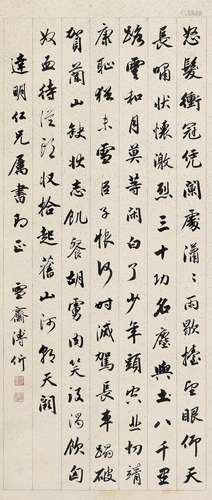 怒髮衝冠凭闌處瀟瀟雨歇擡望眼仰天
長嘯壯懷激烈三十功名塵與土八千里
路雲和月莫等閒白了少年頭空悲切靖
康恥猶未雪臣子恨何時滅駕長車踏破
賀蘭山缺壯志飢餐胡虜肉笑談渴飲匈
奴血待從頭收拾起舊山河朝天闕
達明仁兄屬書即正 雪齋溥伒